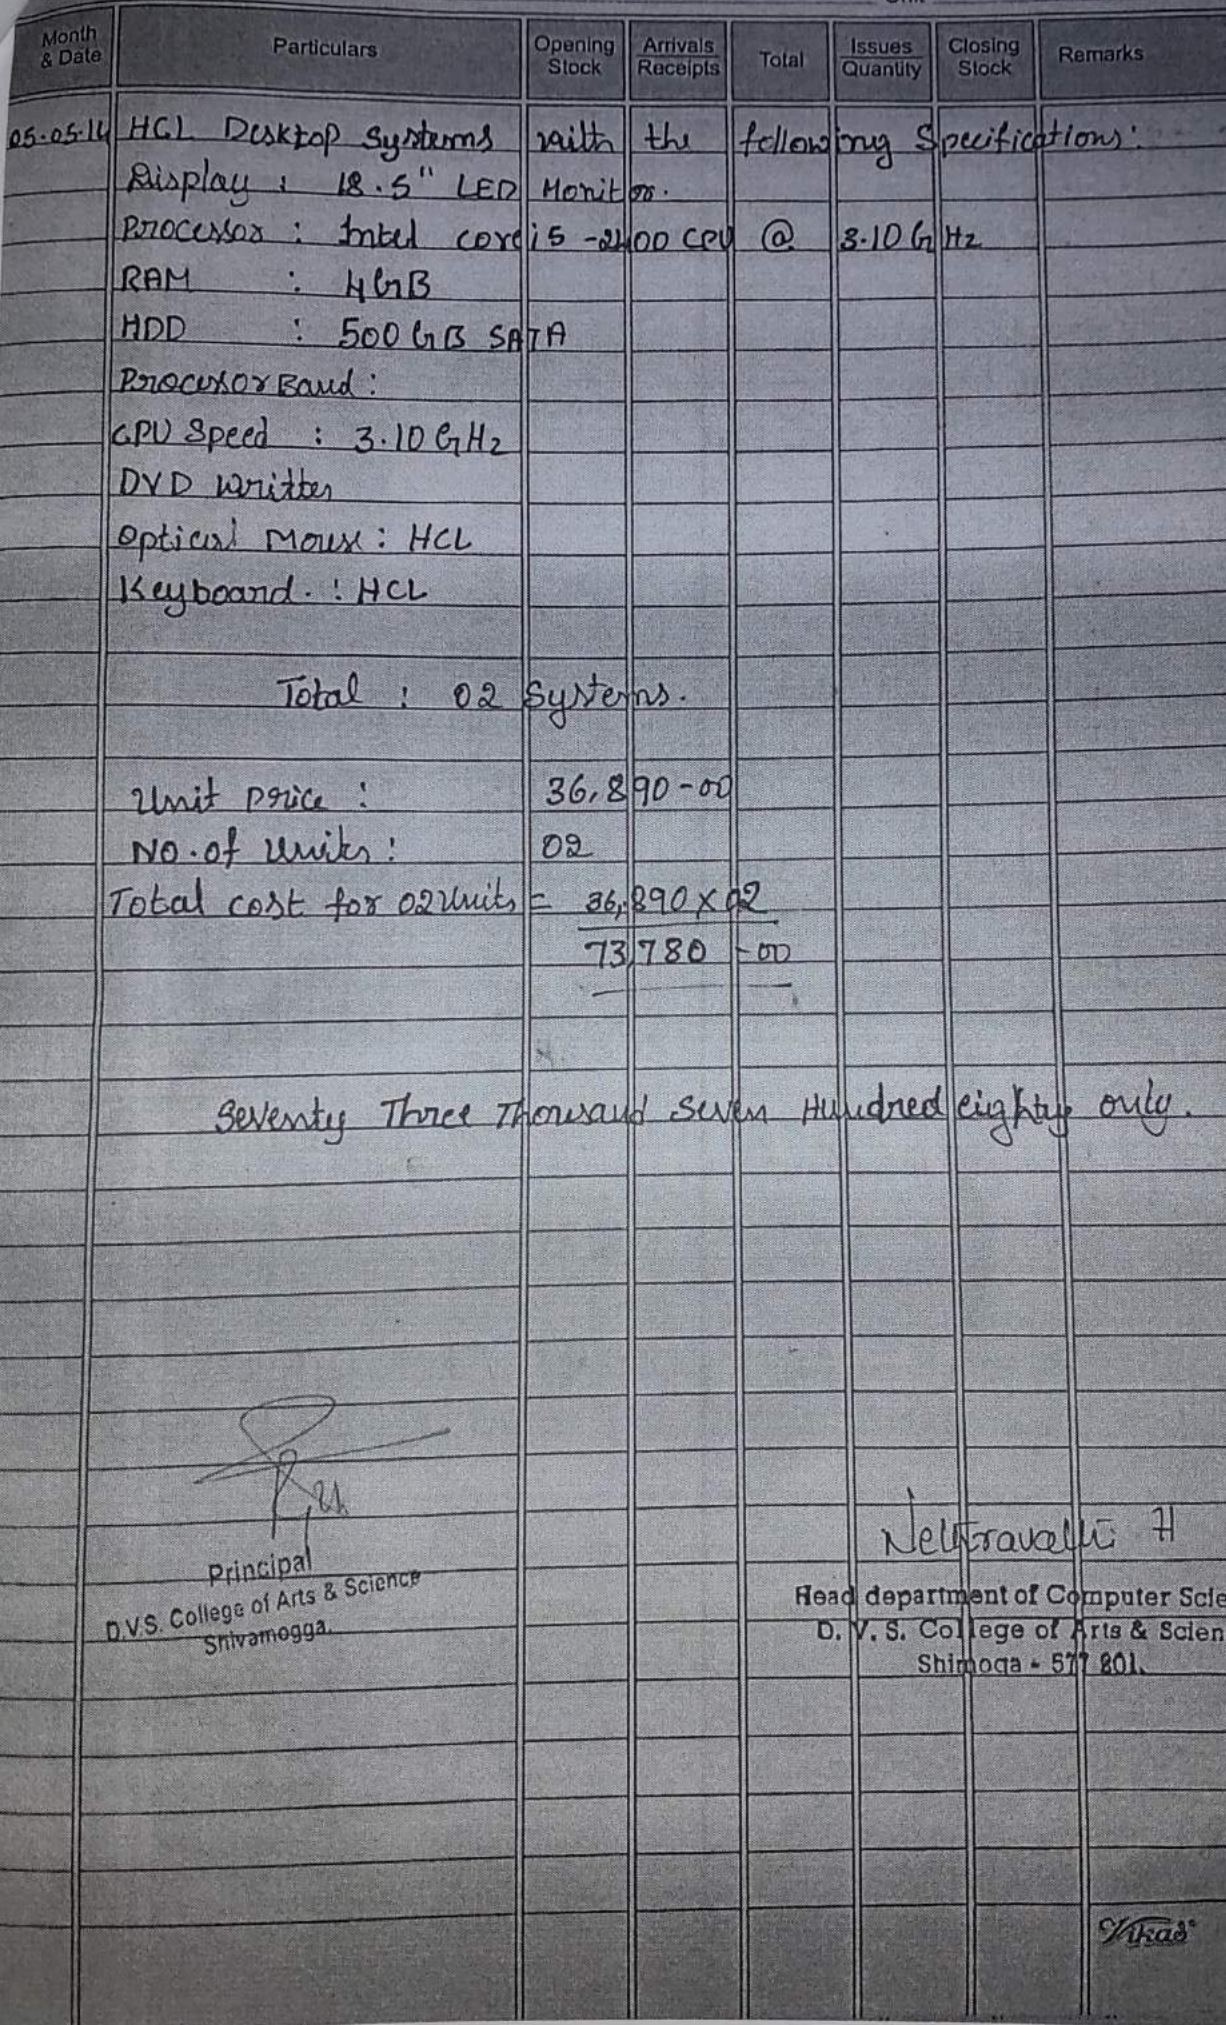 Month & Date Particulars Opening Stock Arrivals Receipts Total Issues Quantity Closing Stock Remarks
05-05-14 HCL Desktop Systems with the following Specifications:
Display : 18.5" LED Monitor.
Processor : Intel core i5 -2400 CPU @ 3.10 GHz
RAM : 4GB
HDD : 500 GB SATA
Processor Baud :
CPU Speed : 3.10 GHz
DVD writter
Optical Mouse : HCL
Keyboard. : HCL
Total : 02 Systems.
Unit price : 36,890-00
NO.of Units : 02
Total cost for 02 Units = 36,890 x 02
73,780 -00
Seventy Three Thousand Seven Hundred eighty only.
Principal
D.V.S. College of Arts & Science
Shivamogga.
Head department of Computer Scie
D. V. S. College of Arts & Scien
Shimoga - 577 801.
Vikas